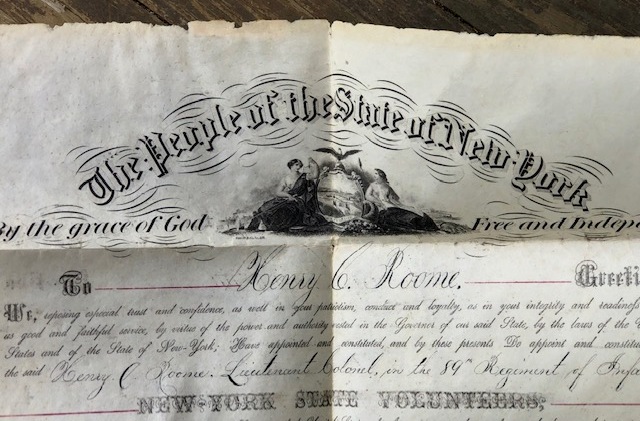 The People of the State of New York
By the grace of God Free and
To Henry C. Roome.
We, reposing especial trust and confidence, as well in your patriotism, conduct and loyalty, as in your integrity and readiness
us good and faithful service, by virtue of the power and authority vested in the Governor of our said State, by the laws of the
States and of the State of New-York; Have appointed and constituted, and by these presents Do appoint and
the said Henry C. Roome. Lieutenant Colonel, in the 89th Regiment of
NEW-YORK STATE VOLUNTEERS,